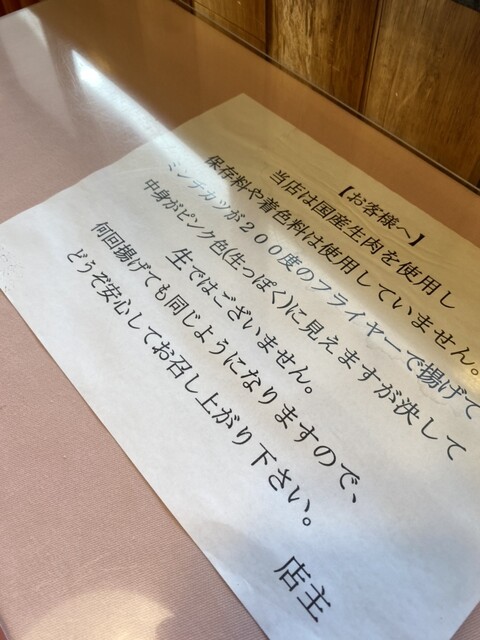 【お客様へ】
当店は国産生肉を使用し
保存料や着色料は使用していません。
ミンチカツが２００度のフライヤーで揚げて
中身がピンク色(生っぽく)に見えますが決して
生ではございません。
何回揚げても同じようになりますので、
どうぞ安心してお召し上がり下さい。
店主